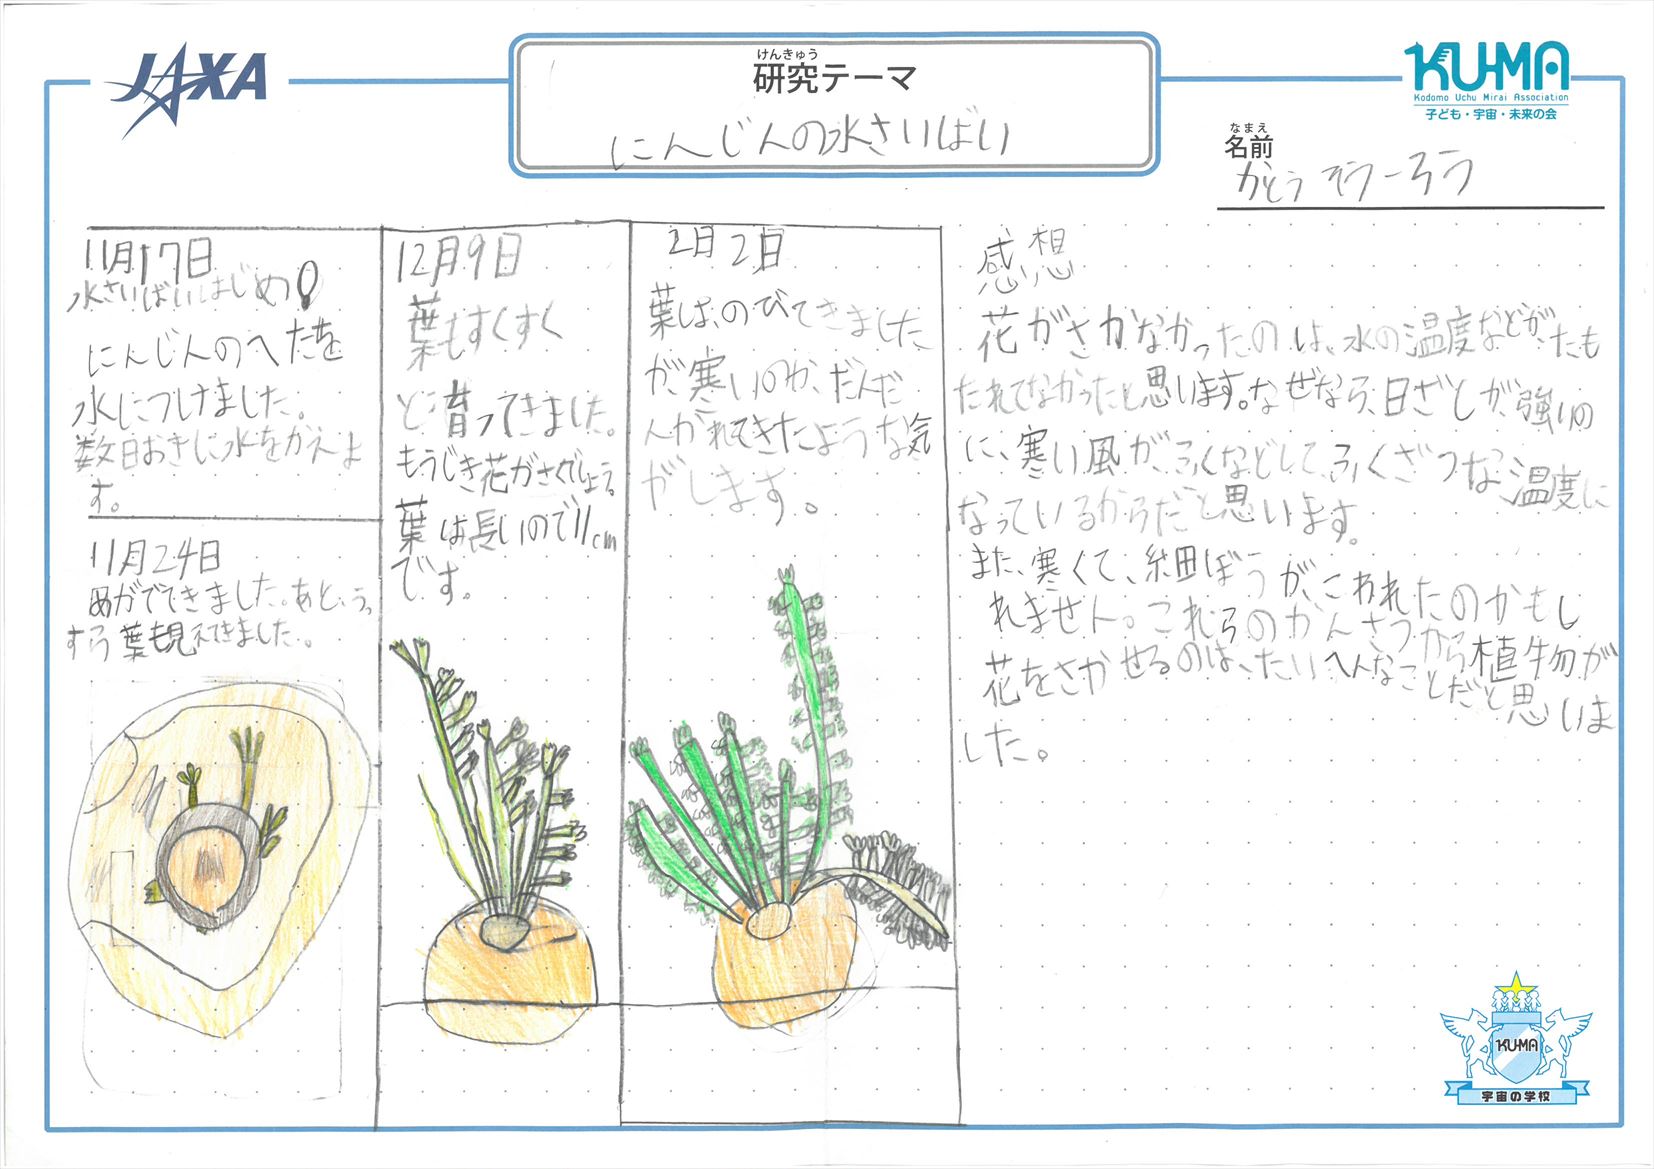 JAXA
けんきゅう
研究テーマ
にんじんの水さいばい
KU-MA
Kodomo Uchu Mirai Association
子ども・宇宙・未来の会
なまえ
名前
かとう そうーろう
11月17日
水さいばいはじめ!
にんじんのへたを
水につけました。
数日おきに水をかえま
す。
11月24日
めがでてきました。あと、うっ
すら葉も見えてきました。
12月9日
葉もすくすく
と育ってきました。
もうじき花がさくでしょう。
葉は長いので11cm
です。
2月2日
葉は、のびてきました
が、寒いのか、だんだ
んかれてきたような気
がします。
感想
花がさかなかったのは、水の温度などが、たも
たれてなかったと思います。なぜなら、日ざしが、強いの
に、寒い風が、ふくなどして、ふくざつな、温度に
なっているからだと思います。
また、寒くて、細ぼうが、こわれたのかもし
れません。これらのかんさつから植物が
花をさかせるのは、たいへんなことだと思いま
した。
KU-MA
宇宙の学校